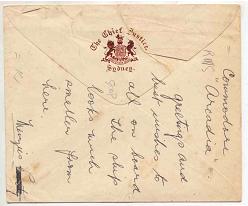 The Chief Justice
Sydney.
= Commodore
RMS "Arcadia" =
greetings and
best wishes to
all on board
the ship
looks much
smaller from
here
Menzies